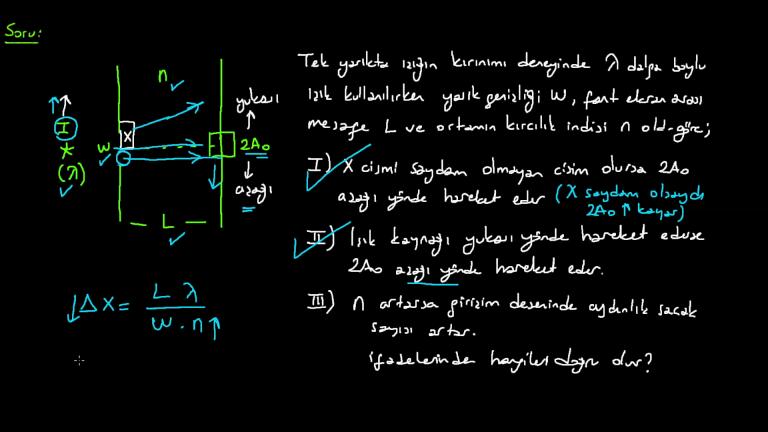 Soru:
n
yukarı
I
X
W
2A₀
(λ)
aşağı
L
Δx = L λ / W . n
Tek yarıkta ışığın kırınımı deneyinde λ dalga boylu
ışık kullanılırken yarık genişliği W, fant ekran arası
mesafe L ve ortamın kırcılık indisi n old. göre;
I) X cismi saydam olmayan cisim olursa 2A₀
aşağı yönde hareket eder (X saydam olsaydı
2A₀ ↑ kayar)
II) Işık kaynağı yukarı yönde hareket ederse
2A₀ aşağı yönde hareket eder.
III) n artarsa girişim deseninde aydınlık saçak
sayısı artar.
ifadelerinde hangileri doğru dur?